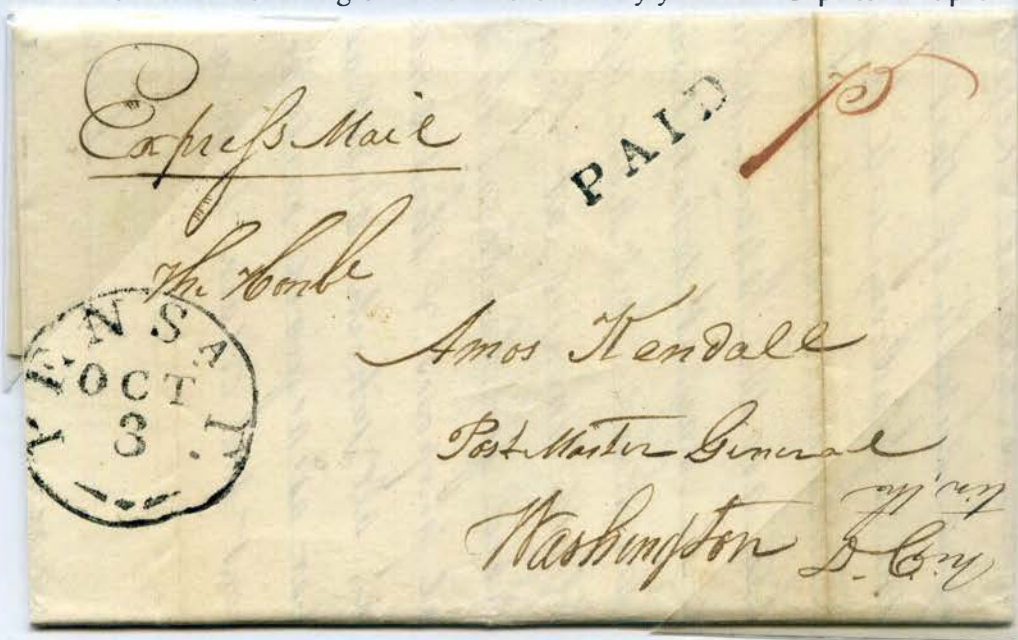 Express Mail
PAID
The Honble
PENSA T.
OCT
3
Amos Kendall
Post Master General
Washington D. C.